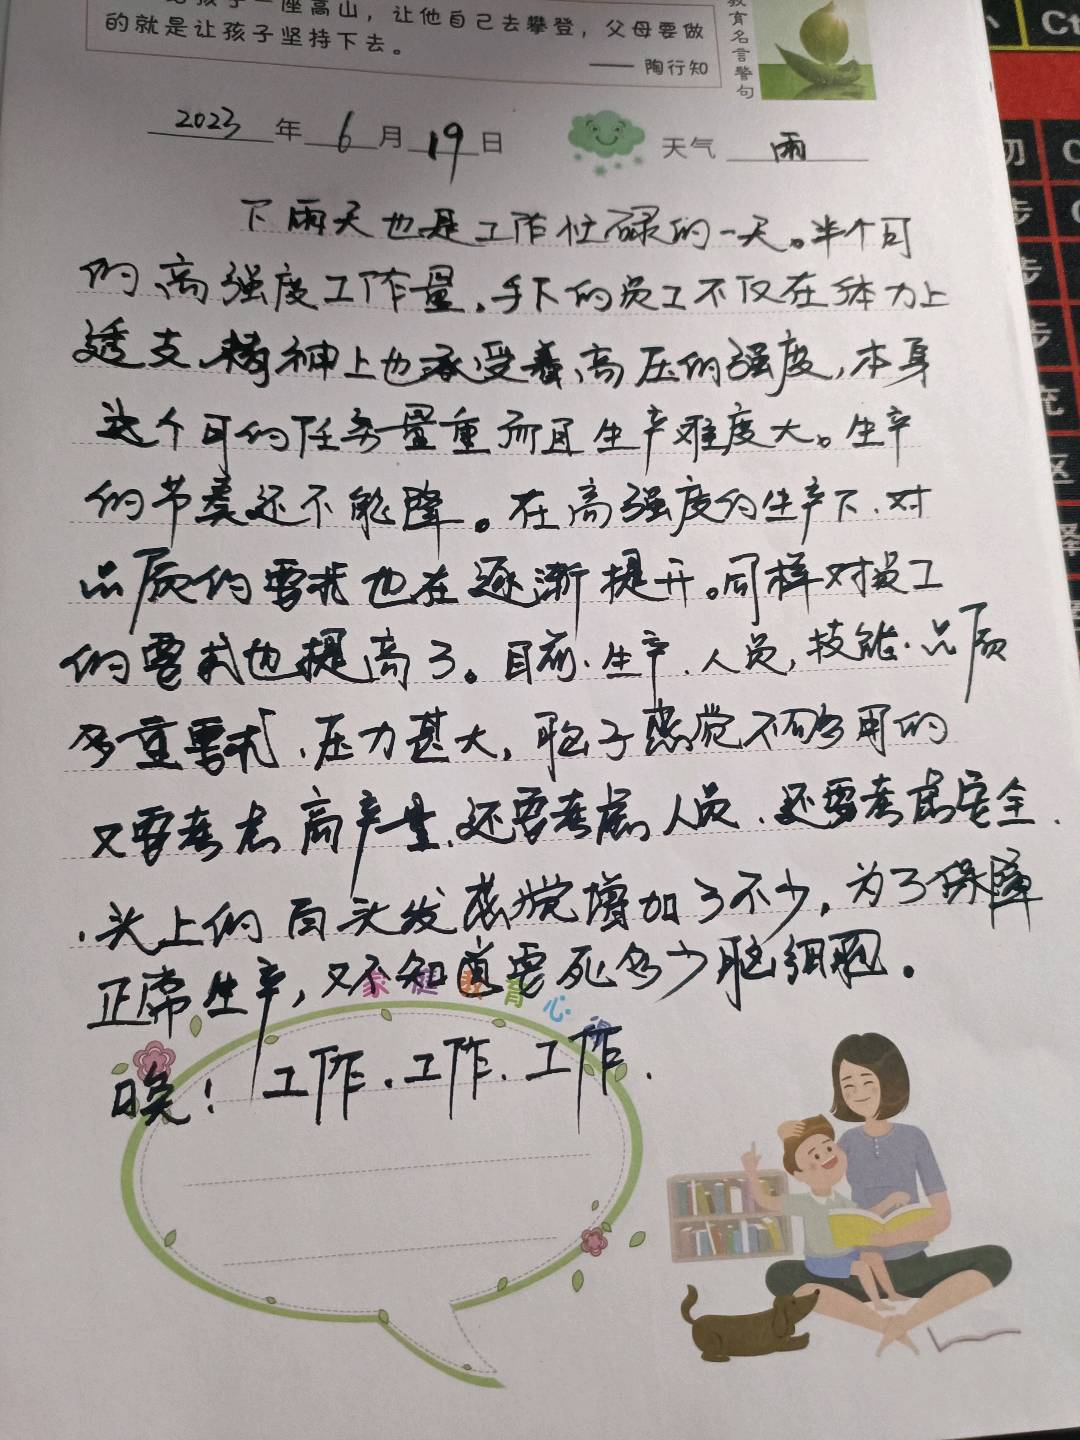 给孩子一座高山，让他自己去攀登，父母要做
的就是让孩子坚持下去。
—— 陶行知
教育名言警句
2023年6月19日 天气 雨
下雨天也是工作忙碌的一天。半个月
的高强度工作量,手下的员工不仅在体力上
透支,精神上也承受着高压的强度,本身
这个月的任务量重而且生产难度大。生产
的节奏还不能降。在高强度的生产下,对
品质的要求也在逐渐提升。同样对员工
的要求也提高了。目前,生产,人员,技能,品质
多重要求,压力甚大,脑子感觉不够用的
又要考虑高产量,还要考虑人员,还要考虑安全,
头上的白头发感觉增加了不少,为了保障
正常生产,又不知道要死多少脑细胞。
家庭教育心得
唉!工作,工作,工作.
Ct